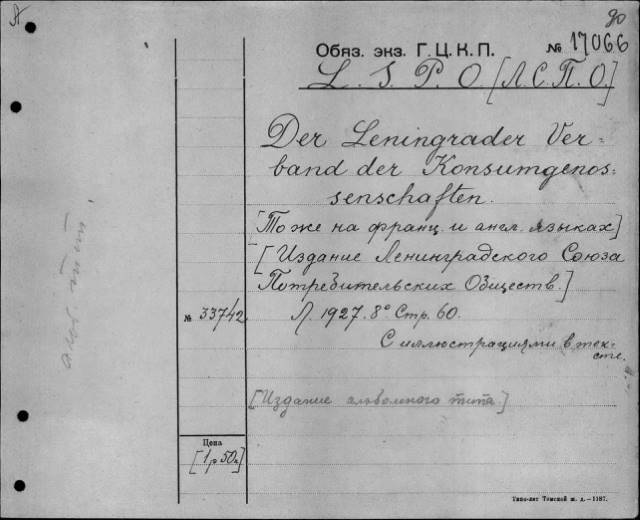 А
до
Обяз. экз. Г.Ц.К.П. № 17066
L. S. P. O. [Л.С.П.О.]
Der Leningrader Ver=
band der Konsumgenos=
senschaften.
[То же на франц. и англ. языках]
[Издание Ленинградского Союза
Потребительских Обществ.]
№ 33742
Л. 1927. 8° Стр. 60.
С иллюстрациями в тек-
сте.
[Издание альбомного типа.]
Цена
[1 р 50 к]
Типо-лит Томской ж. д.—1187.